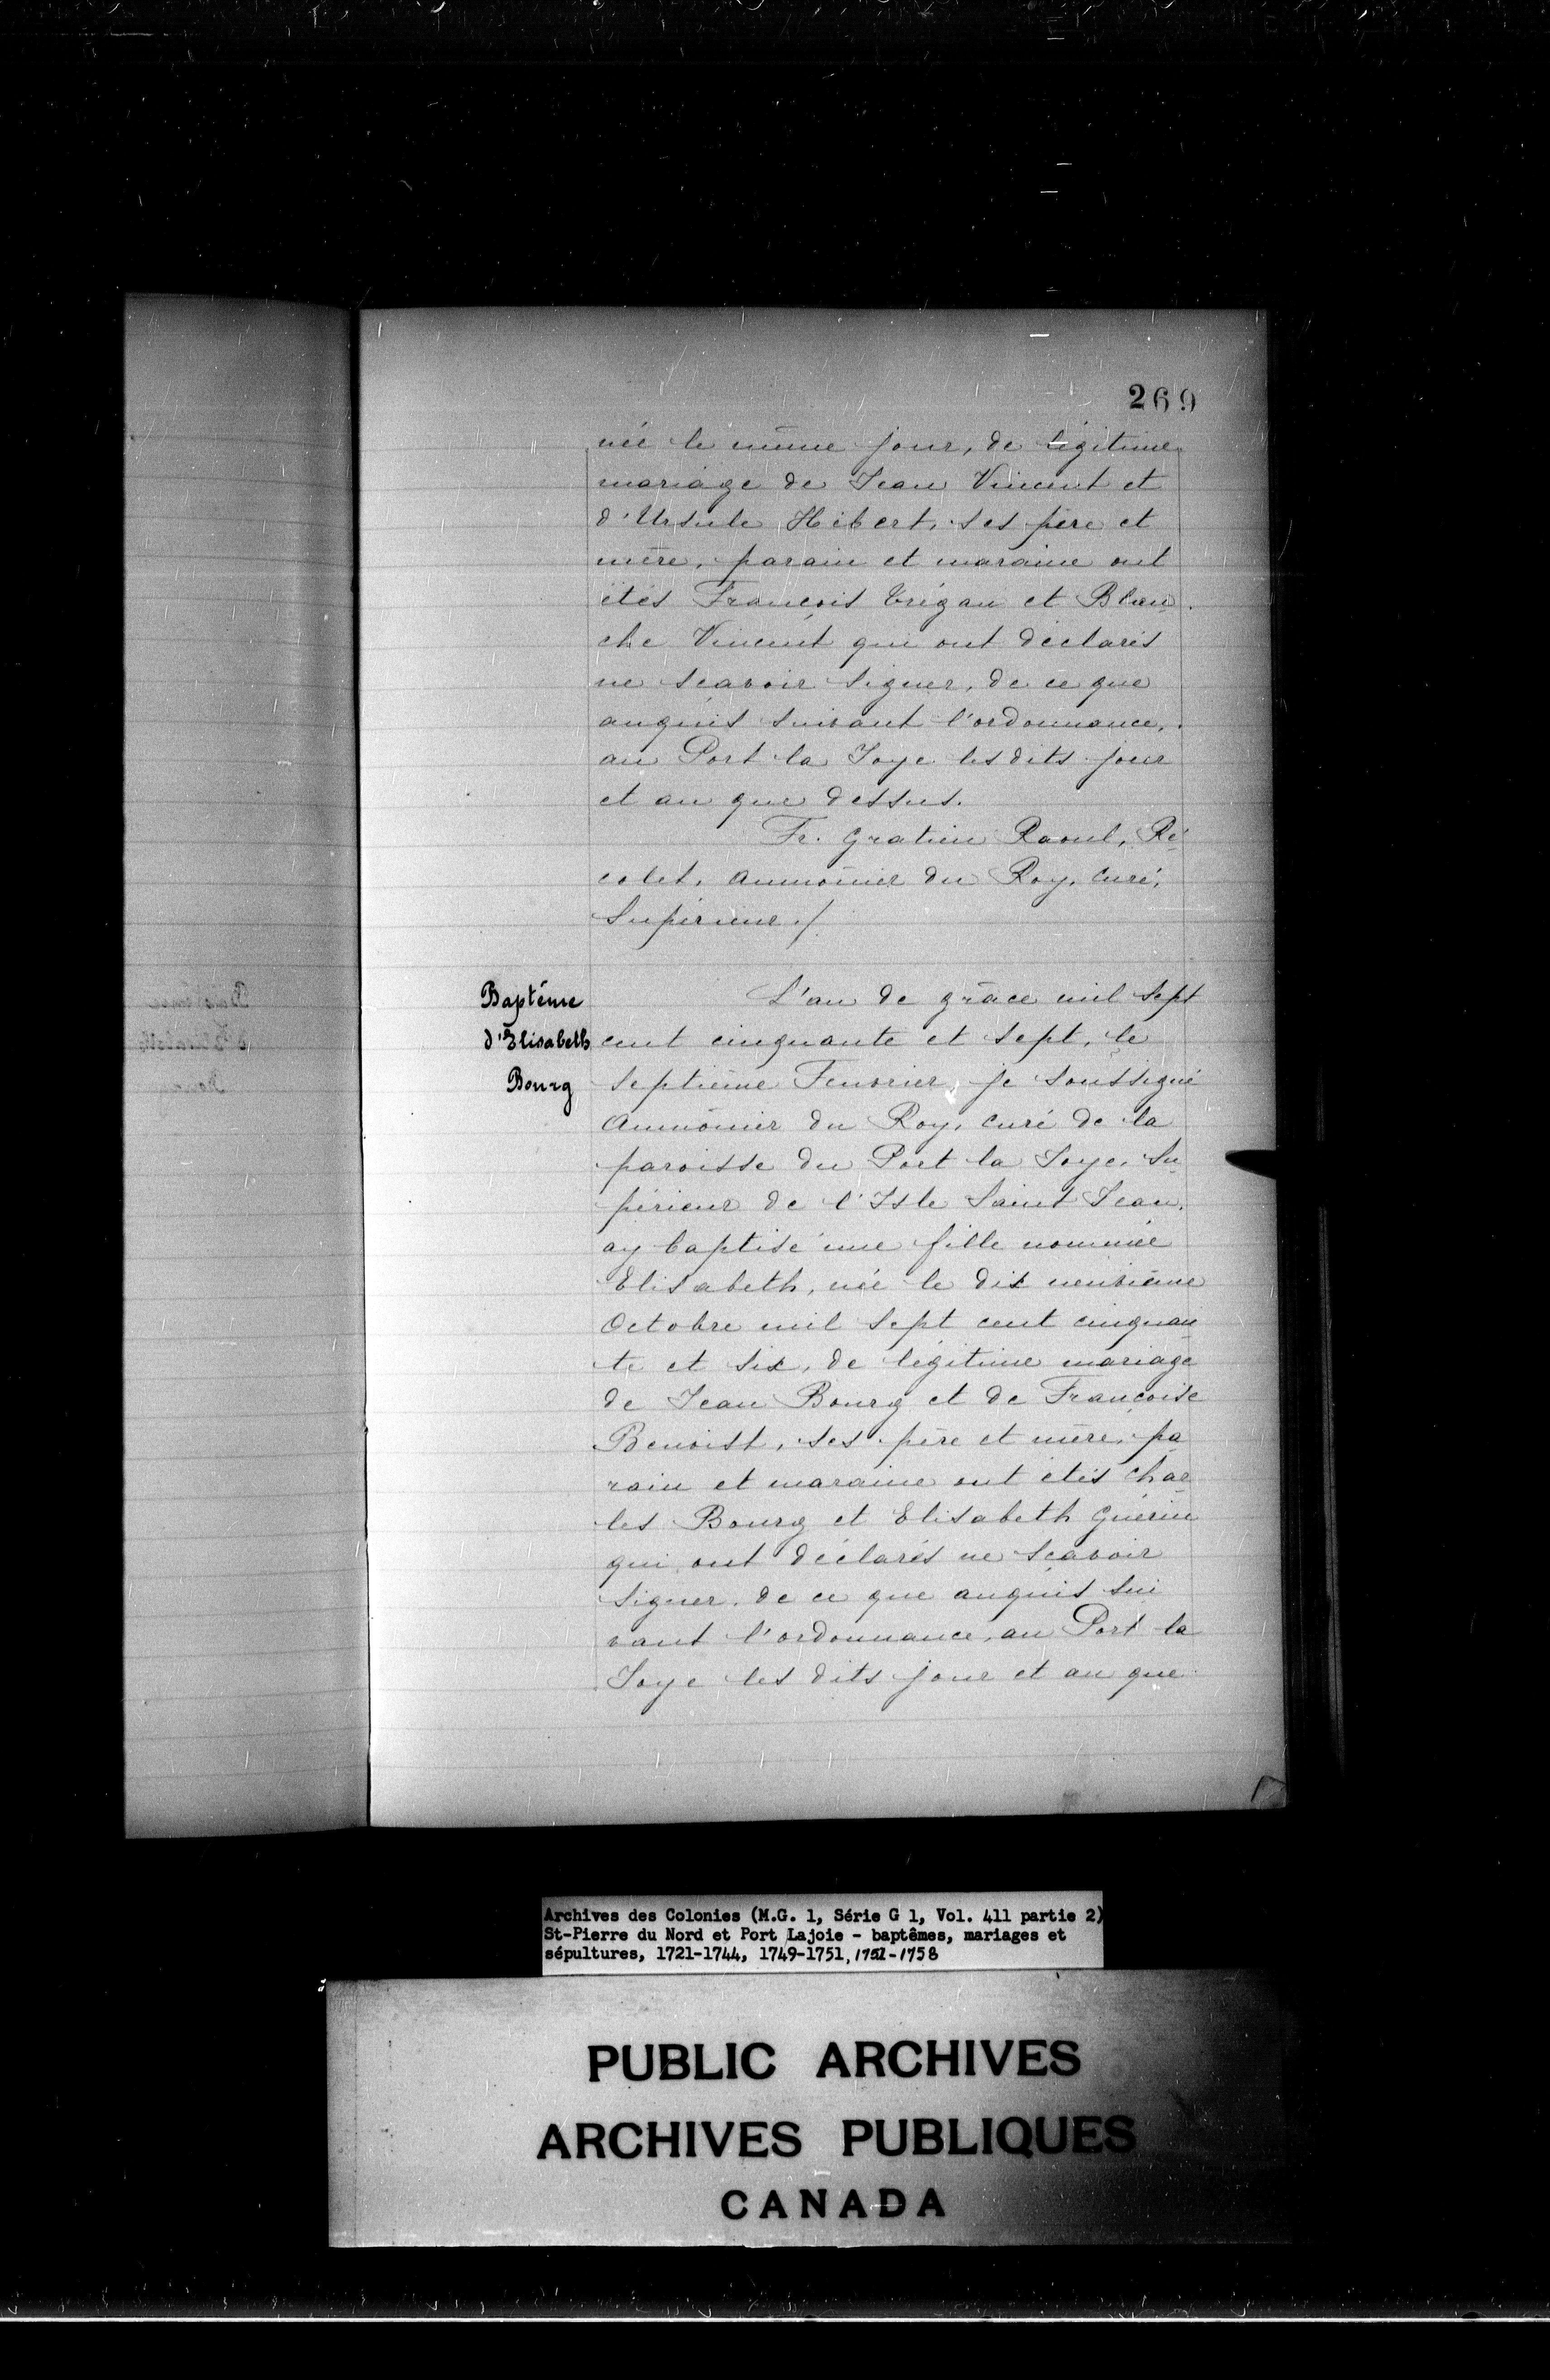 269
née le même jour, de légitime
mariage de Jean Vincent et
d'Ursule Hébert, ses père et
mère, parain et maraine ont
étés François Trégan et Blan
che Vincent qui ont déclarés
ne sçavoir signer, de ce que
anquis suivant l'ordonnance,
au Port la Joye les dits jour
et an que dessus.
Fr. Gratien Raoul, Ré
colet, Aumônier du Roy, Curé,
Supérieur ./.
Baptême
d'Elisabeth
Bourg
L'an de grâce mil sept
cent cinquante et sept, le
septième Fevvrier, je soussigné
Aumônier du Roy, curé de la
paroisse du Port la Joye, Su
périeur de l'Isle Saint Jean,
ay baptisé une fille nommée
Elisabeth, née le dix neuvième
Octobre mil sept cent cinquan
te et six, de légitime mariage
de Jean Bourg et de Françoise
Benoist, ses père et mère, pa
rain et maraine ont étés Char
les Bourg et Elisabeth Guérin
qui ont déclarés ne sçavoir
signer, de ce que anquis sui
vant l'ordonnance, au Port la
Joye les dits jour et an que
Archives des Colonies (M.G. 1, Série G 1, Vol. 411 partie 2)
St-Pierre du Nord et Port Lajoie - baptêmes, mariages et
sépultures, 1721-1744, 1749-1751, 1752-1758
PUBLIC ARCHIVES
ARCHIVES PUBLIQUES
CANADA